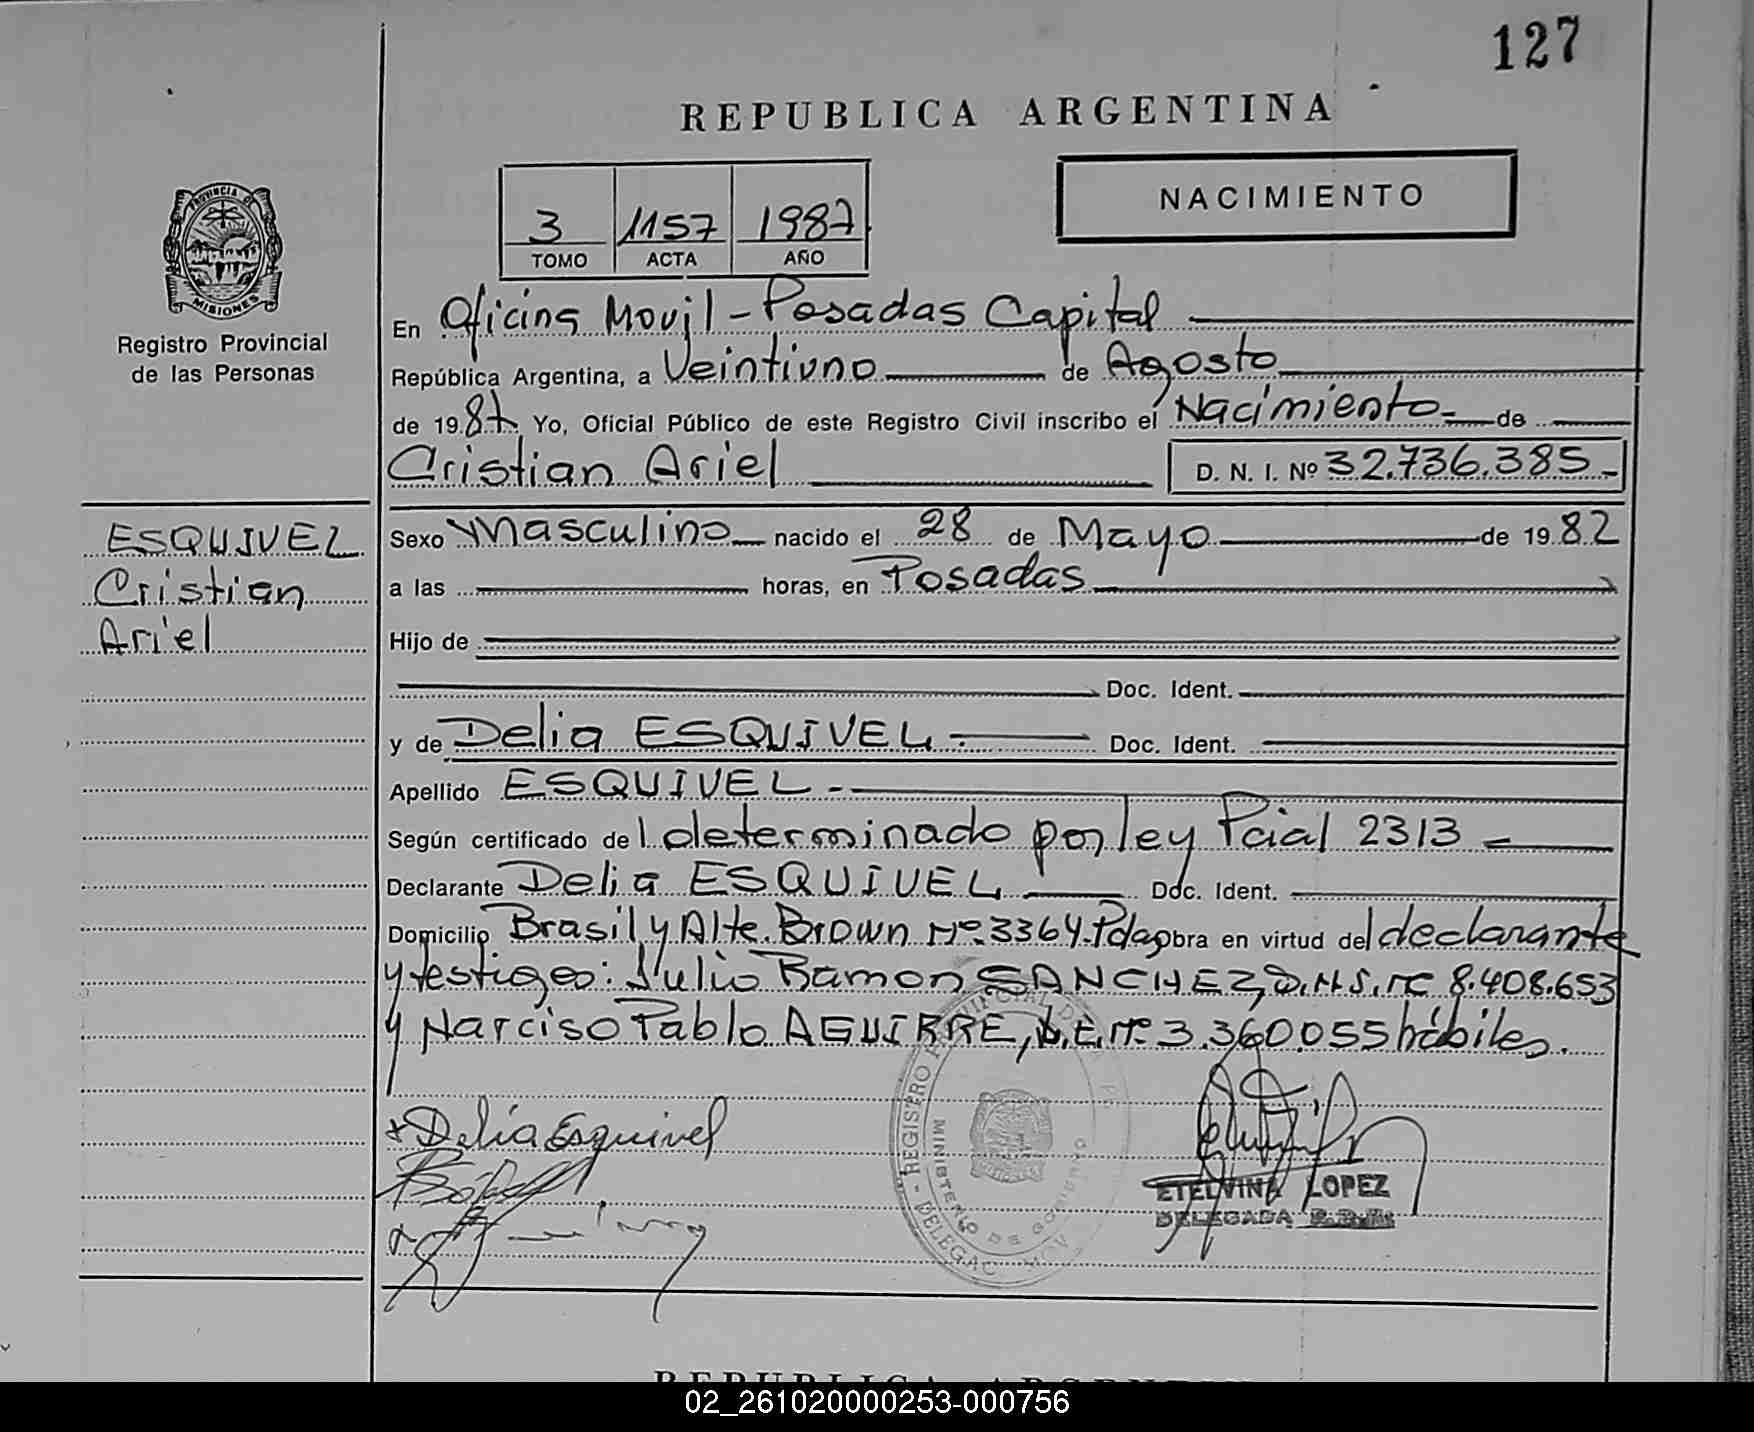 127
REPUBLICA ARGENTINA
NACIMIENTO
3 1157 1987
TOMO ACTA AÑO
PROVINCIA DE
MISIONES
Registro Provincial
de las Personas
En Oficina Movil - Posadas Capital
República Argentina, a Veintiuno de Agosto
de 1987 Yo, Oficial Público de este Registro Civil inscribo el Nacimiento de
Cristian Ariel D. N. I. Nº 32.736.385.-
ESQUIVEL
Cristian
Ariel
Sexo Masculino nacido el 28 de Mayo de 1982
a las horas, en Posadas
Hijo de
Doc. Ident.
y de Delia ESQUIVEL.- Doc. Ident.
Apellido ESQUIVEL.-
Según certificado de l determinado por ley Pcial 2313 -
Declarante Delia ESQUIVEL Doc. Ident.
Domicilio Brasil y Alte. Brown Nº 3364. Pdas obra en virtud del declarante
y testigos: Julio Ramon SANCHEZ, D.N.I. Nº 8.408.653
y Narciso Pablo AGUIRRE, L.E. Nº 3.360.055 hábiles.
Delia Esquivel
REGISTRO PROVINCIAL DE
MINISTERIO DE GOBIERNO
ETELVINA LOPEZ
DELEGADA
REPUBLICA ARGENTINA
02_261020000253-000756